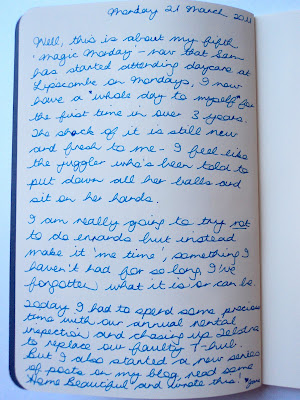 Monday 21 March 2011
Well, this is about my fifth
'Magic Monday' - now that Sam
has started attending daycare at
Lipscombe on Mondays, I now
have a *whole day to myself* for
the first time in over 3 years.
The shock of it is still new
and fresh to me - I feel like
the juggler who's been told to
put down all her balls and
sit on her hands.
I am really going to try not
to do errands but instead
make it 'me time', something I
haven't had for so long I've
forgotten what it is or can be.
Today I had to spend some precious
time with our annual rental
inspection and chasing up Telstra
to replace our faulty T-hub.
But I also started a new series
of posts on my blog, read some
Home Beautiful and wrote this!